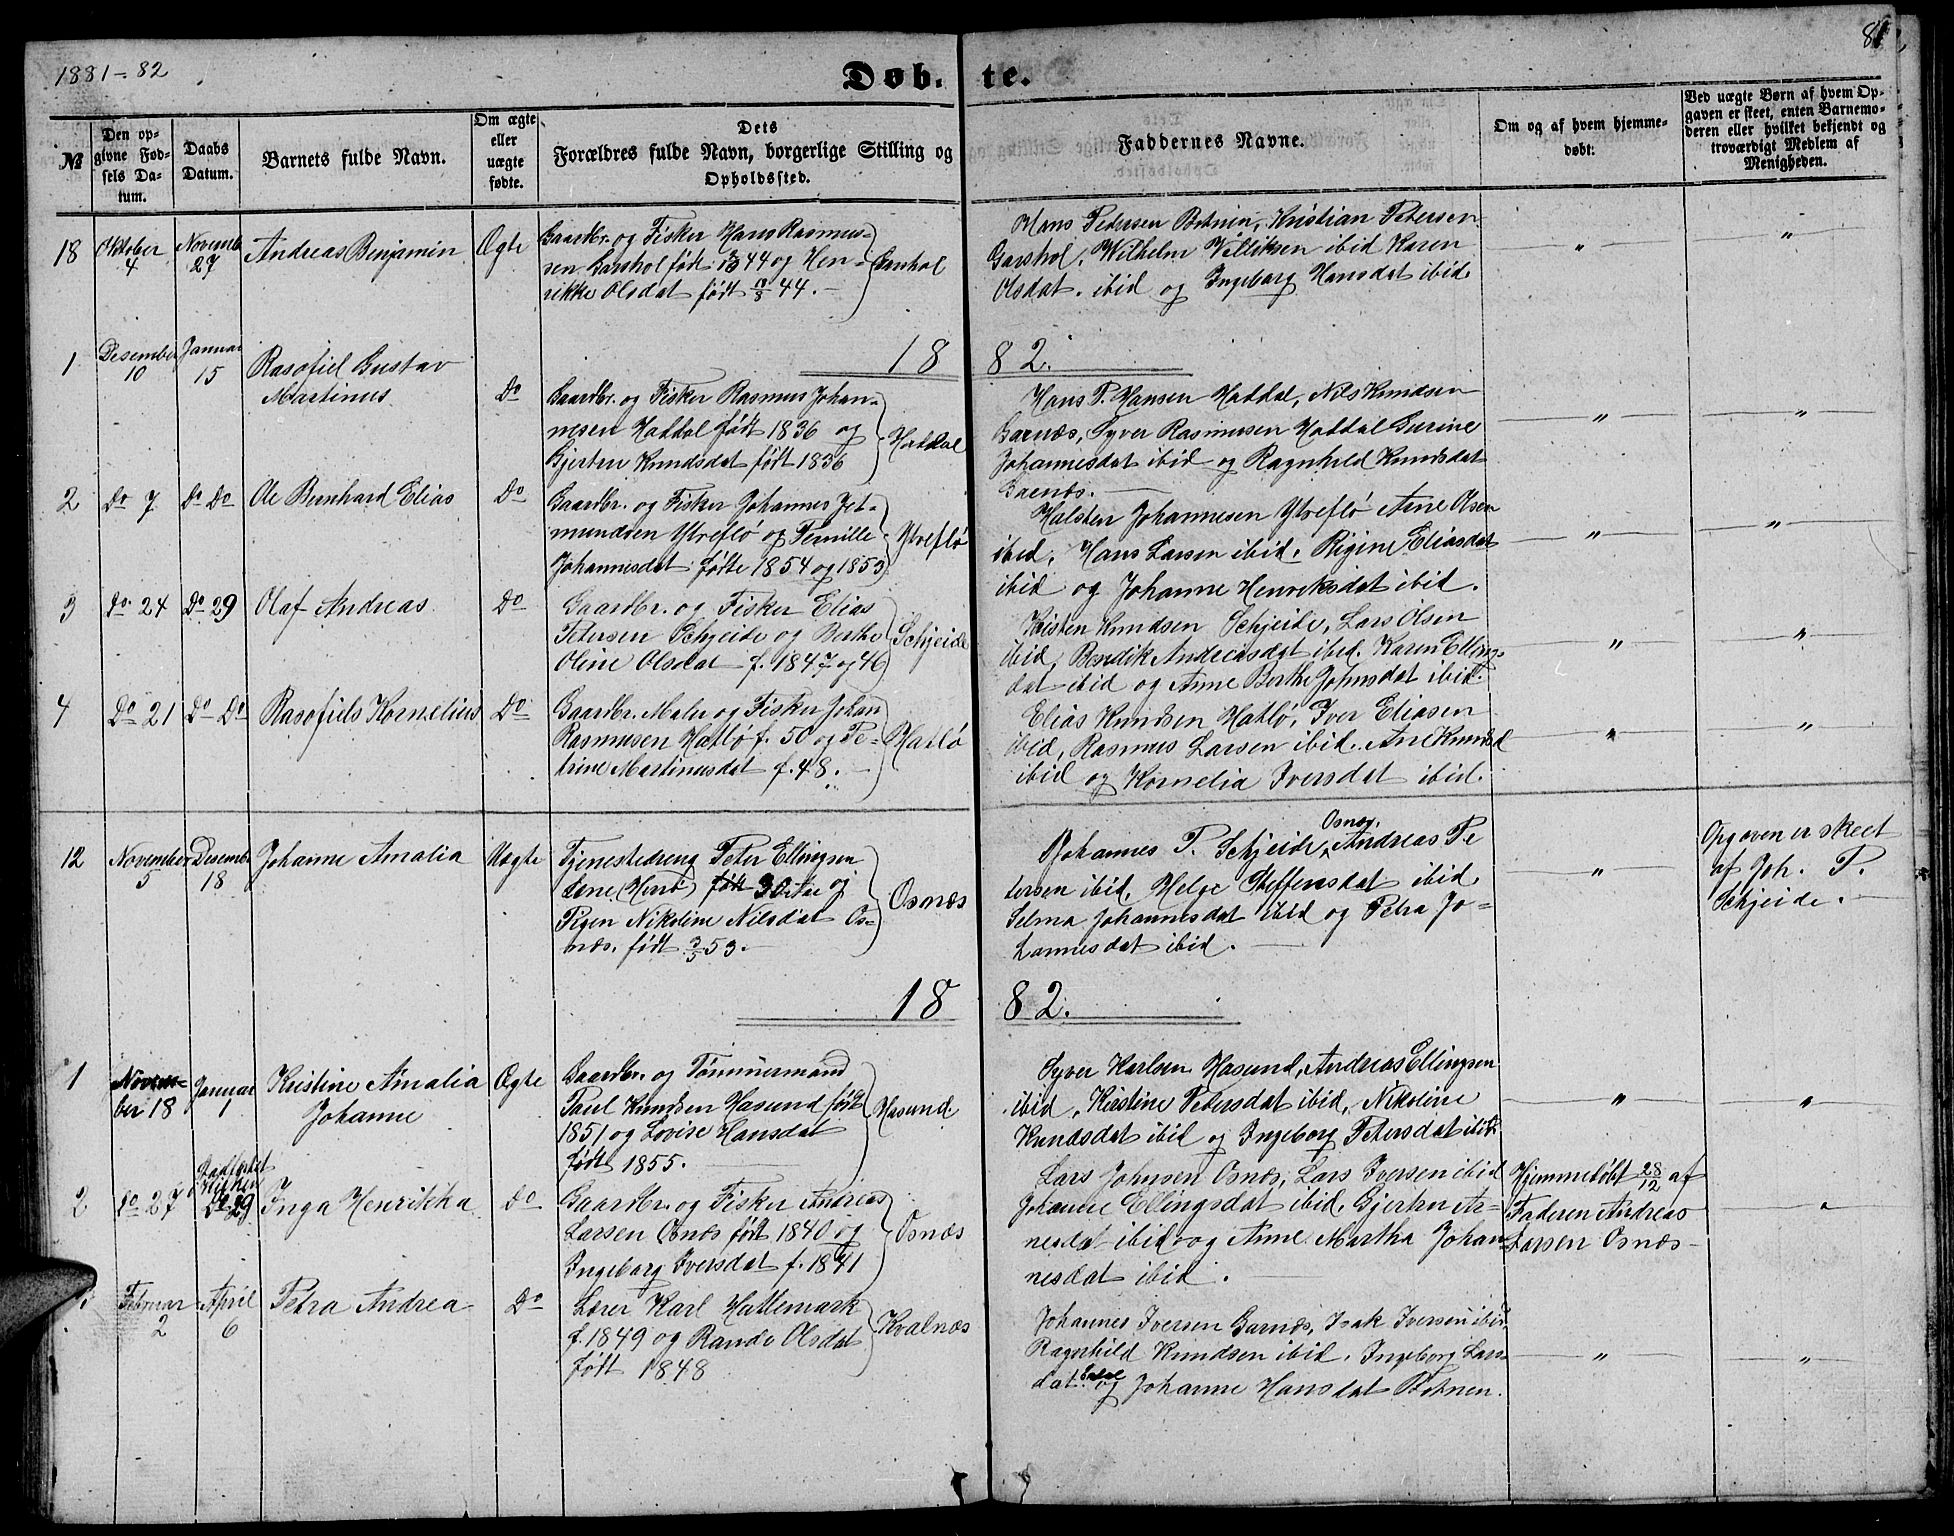 1881-82
Døb-
te.
81
№
Den op-
givne Fød-
sels Da-
tum.
Daabs
Datum.
Barnets fulde Navn.
Om ægte
eller
uægte
fødte.
Dets
Forældres fulde Navn, borgerlige Stilling og
Opholdssted.
Faddernes Navne.
Om og af hvem hjemme-
døbt:
Ved uægte Børn af hvem Op-
gaven er skeet, enten Barnemo-
deren eller hvilket bekjendt og
troværdigt Medlem af
Menigheden.
18
Oktober
4
Novemb
27
Andreas Benjamin
Ægte
Gaardbr. og Fisker Hans Rasmus-
sen Garshol født 44 og Hen-
rikke Olsdat født 44.
Garshol
Hans Pedersen Botnen, Kristian Petersen
Garshol, Wilhelm Williksen ibid Karen
Olsdat. ibid og Ingeborg Hansdat ibid.
"
"
18
82.
1
Desember
10
Januar
15
Rasofiel Gustav
Martinus.
Do
Gaardbr. og Fisker Rasmus Johan-
nesen Haddal født 1836 og
Gjertru Knudsdat født 1836
Haddal
Hans P. Hansen Haddal, Nils Knudsen
Garnæs, Syver Rasmusen Haddal Gurine
Johannesdat ibid og Ragnhild Knudsdat
Garnæs.
"
"
2
Do 7
Do Do
Ole Bernhard Elias
Do
Gaardbr. og Fisker Johannes Jet-
mundsen Ytreflø og Pernille
Johannesdat fødte 1854 og 1853
Ytreflø
Halsten Johannesen Ytreflø Arne Olsen
ibid, Hans Larsen ibid. Rigine Eliasdat
ibid og Johanne Henriksdat ibid.
"
"
3
Do 24
Do 29
Olaf Andreas
Do
Gaardbr. og Fisker Elias
Petersen Schjeide og Berthe
Oline Olsdat f. 1847 og 46
Schjeide
Kristen Knudsen Schjeide, Lars Olsen
ibid, Bendik Andreasdat ibid. Karen Elling-
dat ibid og Anne Berthe Johnsdat ibid.
"
"
4
Do 21
Do Do
Rasofiels Kornelius
Do
Gaardbr. Maler og Fisker Johan
Rasmusen Hatlø f. 50 og Pe-
trine Martinusdat f. 48.
Hatlø
Elias Knudsen Hatlø, Iver Eliasen
ibid, Rasmus Larsen ibid. Ane Knudsd
ibid og Kornelia Iversdat ibid.
"
"
12
November
5
Desemb
18
Johanne Amalia
Uægte
Tjenestedreng Peter Ellingsen
(Herø) født 30 Aar og
Pigen Nikoline Nilsdat Os-
næs. født 3/5 53.
Osnæs
Johannes P. Schjeide Osnæs, Andreas Pe
tersen ibid, Helge Steffensdat ibid.
Selma Johannesdat ibid og Petra Jo-
hannesdat ibid.
"
Opgaven er skeet
af Joh. P.
Schjeide.
18
82.
1
Novem-
ber 18
Januar
1
Kristine Amalia
Johanne
Ægte
Gaardbr. og Tømmermand
Paul Knudsen Hasund født
1851 og Lovise Hansdat
født 1855.
Hasund.
Syver Karlsen Hasund, Andreas Ellingsen
ibid, Kirstine Petersdat ibid, Nikoline
Knudsdat ibid og Ingeborg Petersdat ibid.
"
"
2
Do 27
Stadfæstet
i Kirken
Do 29
Inga Henrikka
Do
Gaardbr. og Fisker Andreas
Larsen Osnæs født 1840 og
Ingeborg Iversdat f. 1841
Osnæs
Lars Johnsen Osnæs, Lars Iversen ibid
Johanne Ellingsdat ibid. Gjertru Ar-
nesdat ibid og Anne Martha Johan-
nesdat ibid.
Hjemmedøbt 28/12 af
Faderen Andreas
Larsen Osnæs
"
Februar
2
April
6
Petra Andrea
Do
Lærer Karl Hattemark
f. 1849 og Rande Olsdat
født 1848
Kvalnæs
Johannes Iversen Garnæs, Isak Iversen ibid.
Ragnhild Knudsen ibid. Ingeborg Lars-
dat og Johanne Hansdat Botnen.
"
"